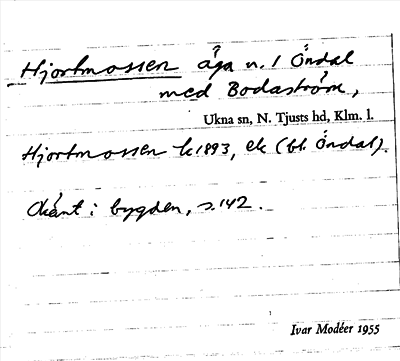 Hjortmossen äga n. 1 Öndal
med Bodaström,
Ukna sn, N. Tjusts hd, Klm. l.
Hjortmossen k 1893, ek (bl Öndal).
Okänt i bygden, s. 142.
Ivar Modéer 1955